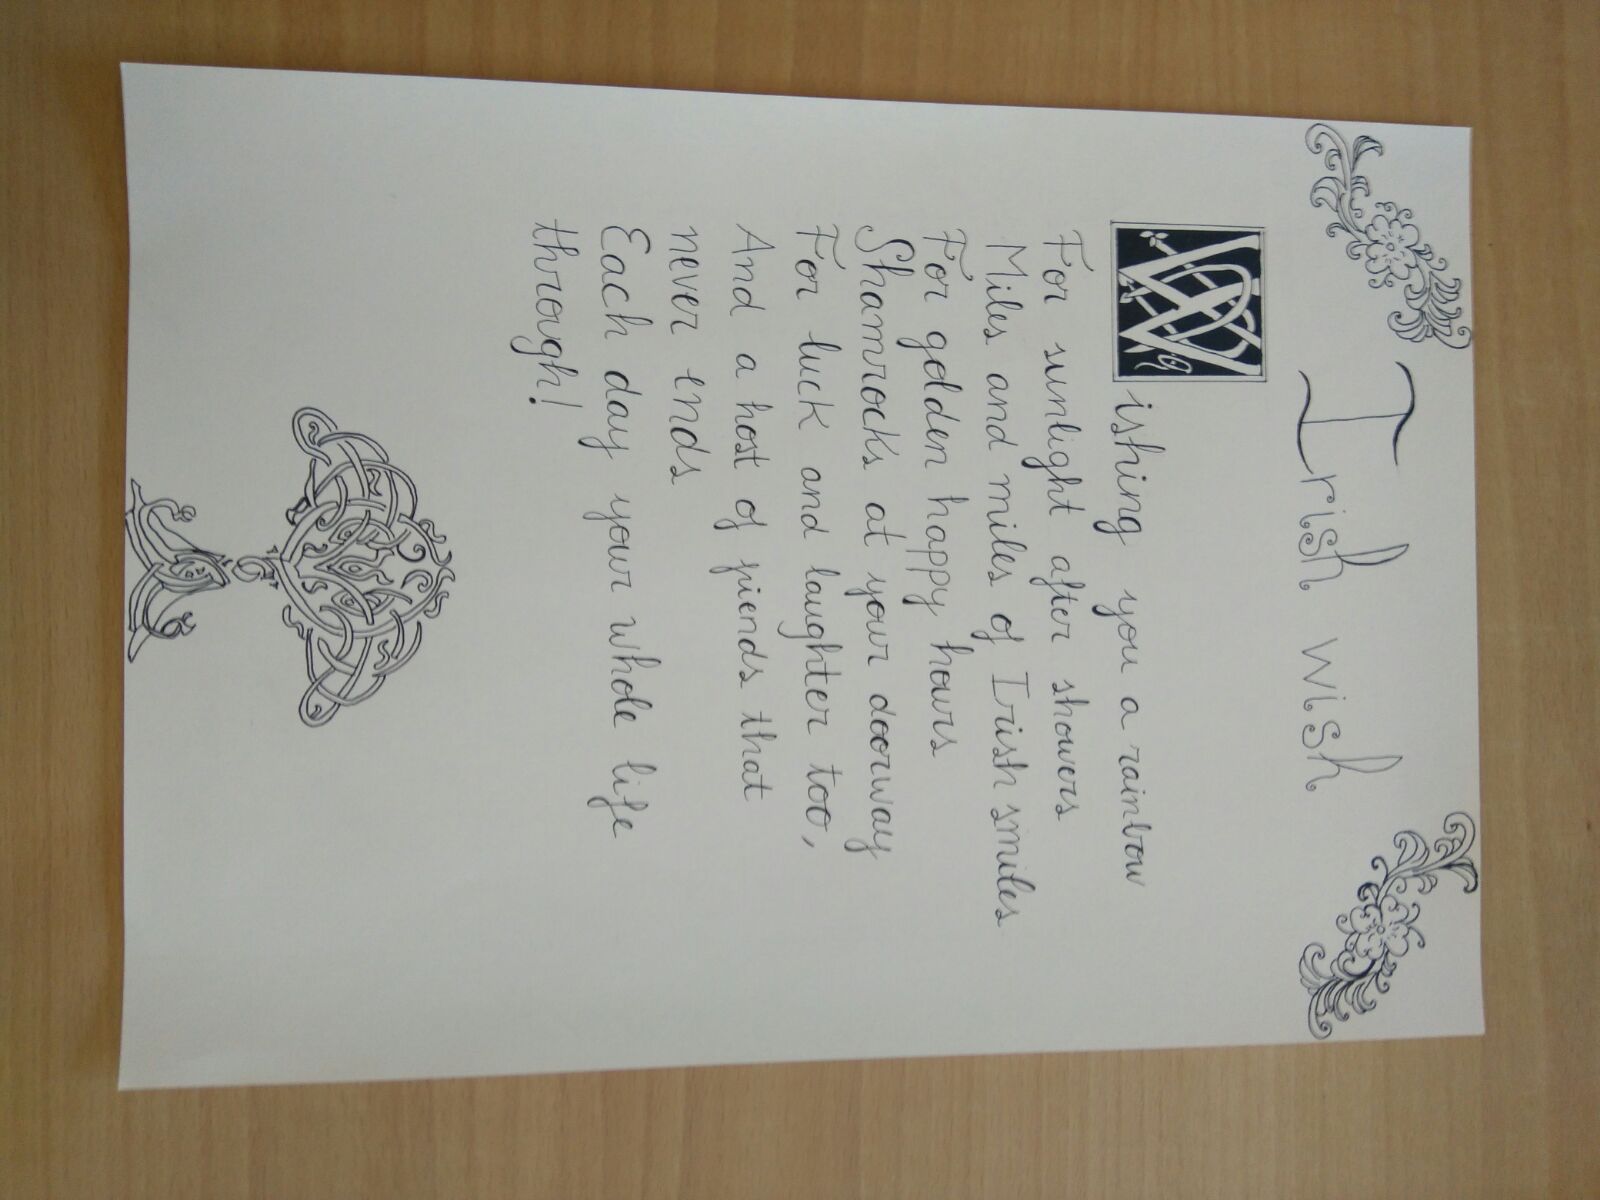 Irish wish
Wishing you a rainbow
For sunlight after showers
Miles and miles of Irish smiles
For golden happy hours
Shamrocks at your doorway
For luck and laughter too,
And a host of friends that
never ends
Each day your whole life
through!